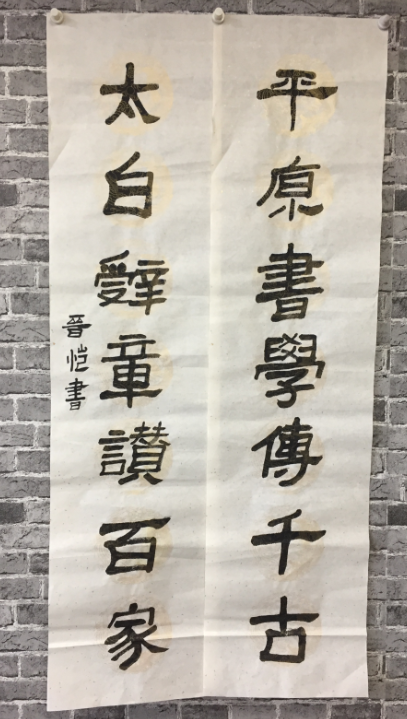 平原書學傳千古
太白辭章讃百家
晉恺書